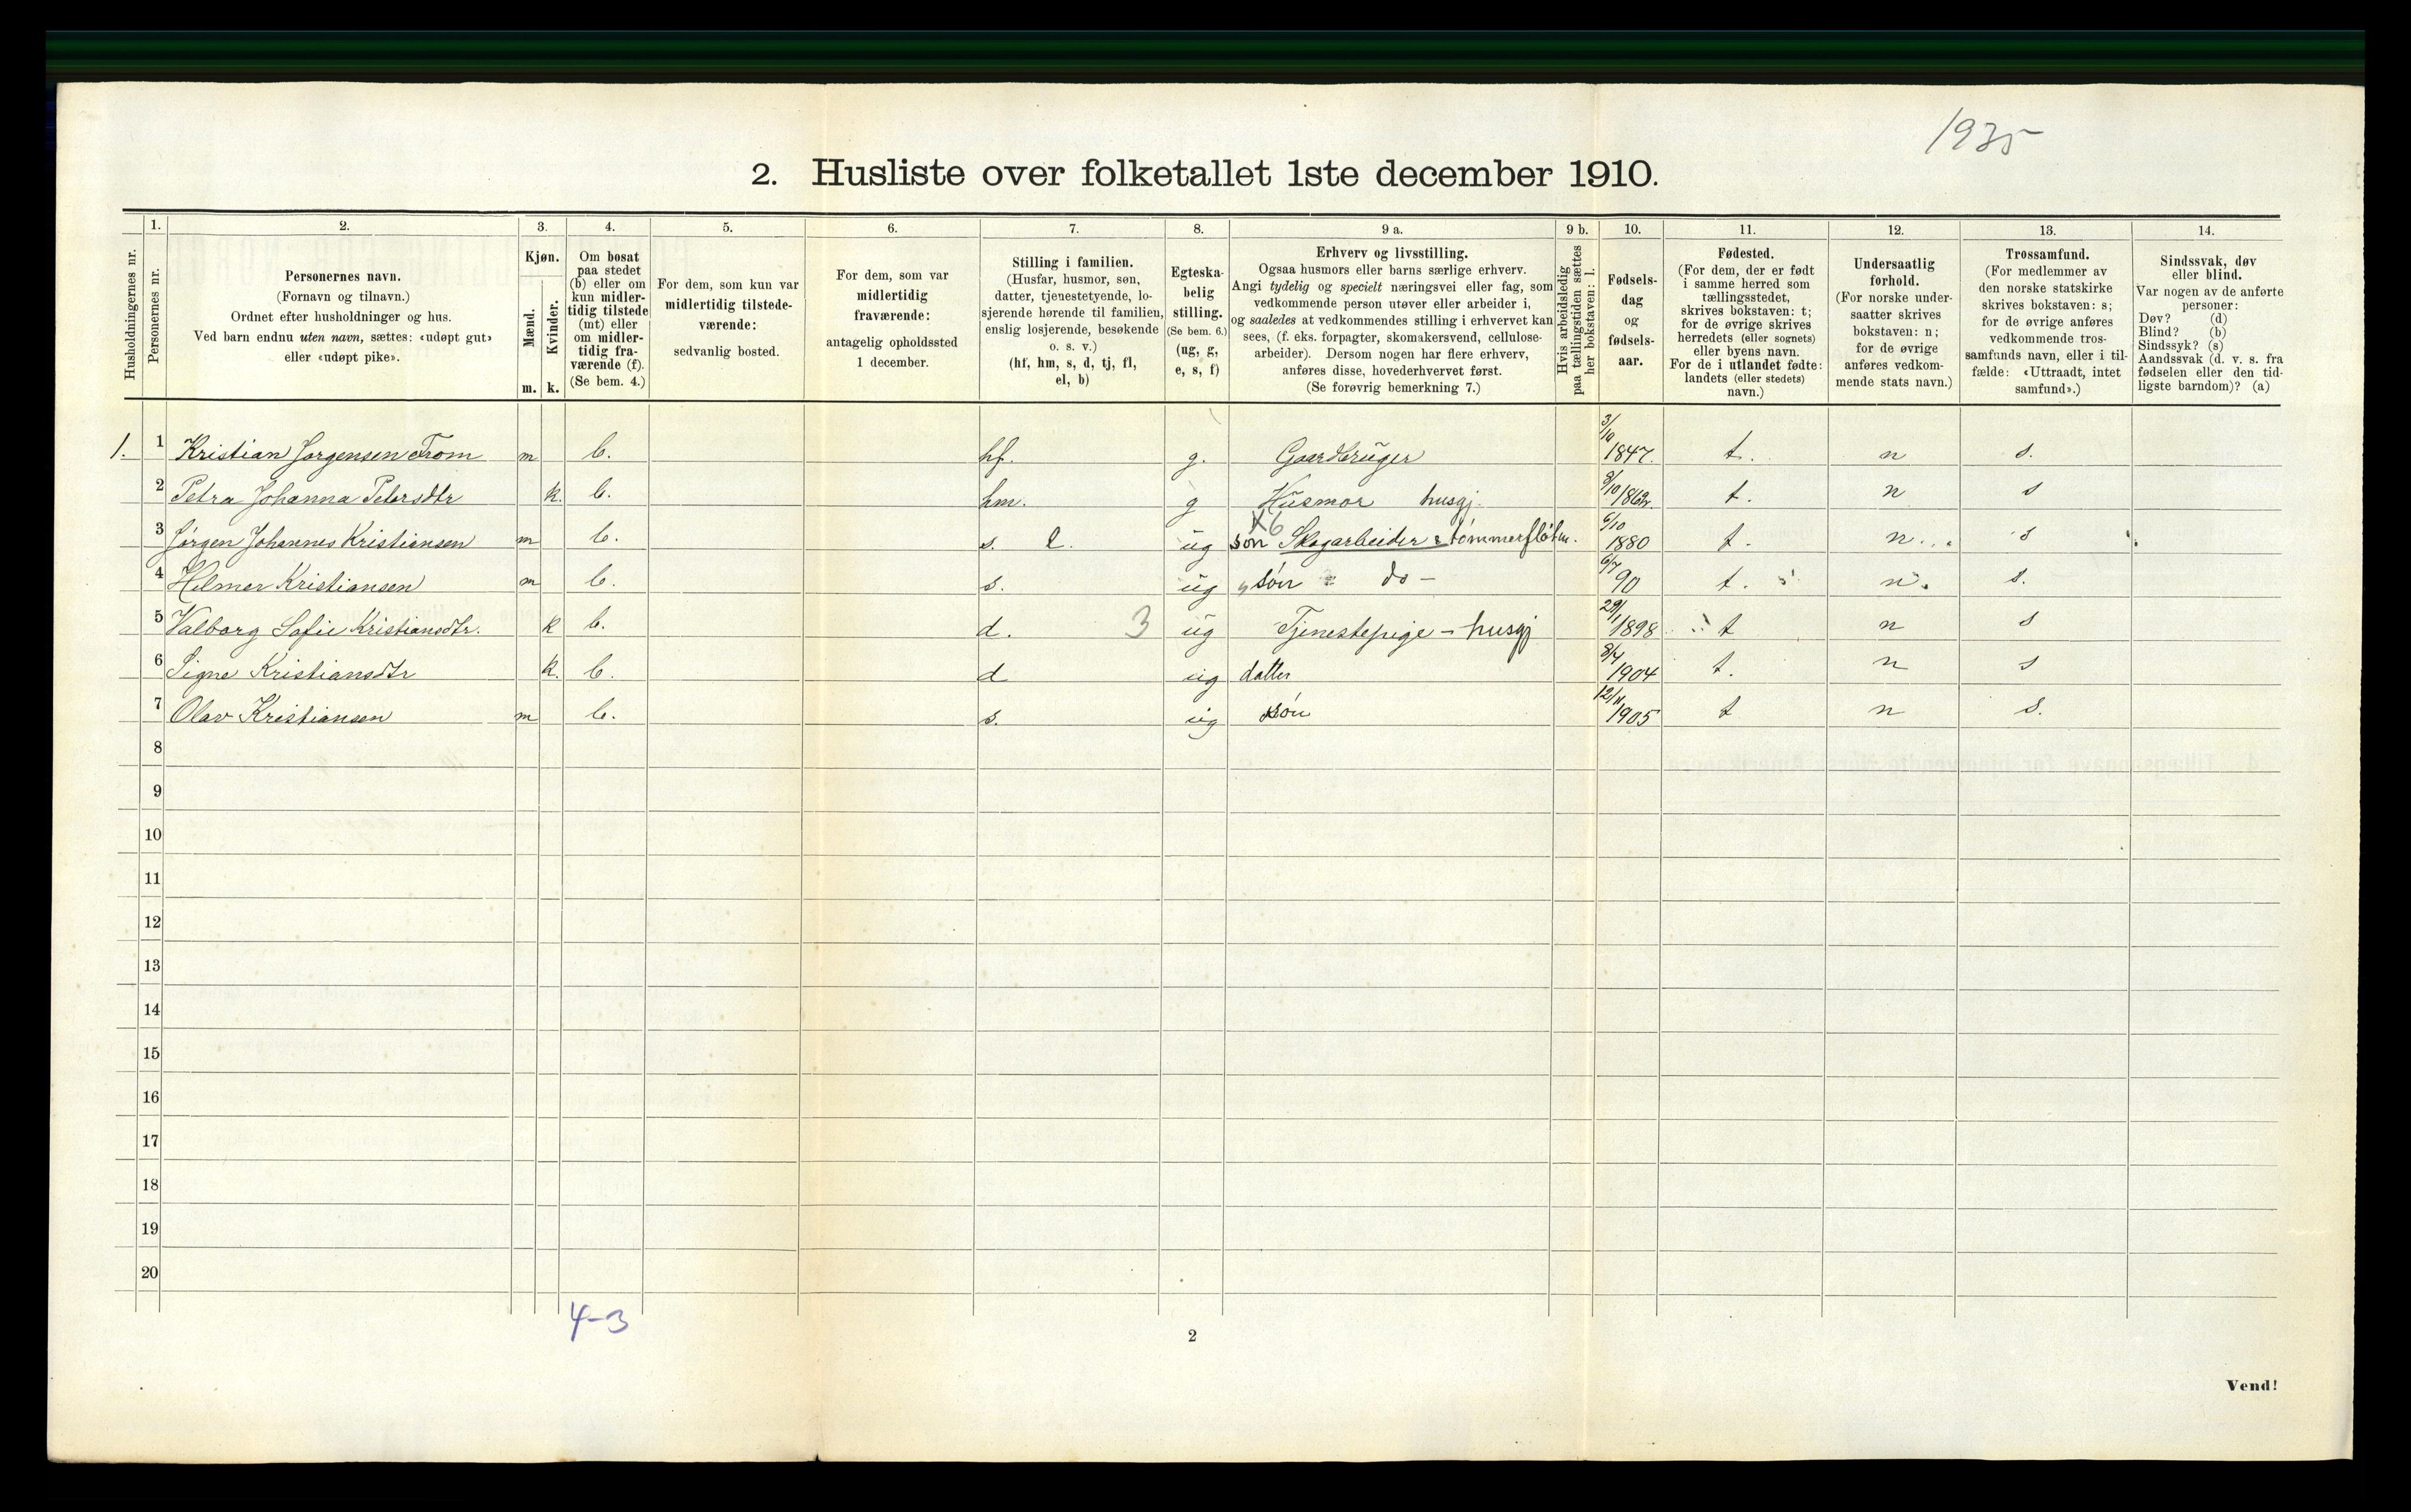 1935
2. Husliste over folketallet 1ste december 1910.
Husholdningernes nr.
1.
Personernes nr.
2.
Personernes navn.
(Fornavn og tilnavn.)
Ordnet efter husholdninger og hus.
Ved barn endnu uten navn, sættes: «udøpt gut»
eller «udøpt pike».
3.
Kjøn.
Mænd.
Kvinder.
m. k.
4.
Om bosat
paa stedet
(b) eller om
kun midler-
tidig tilstede
(mt) eller
om midler-
tidig fra-
værende (f).
(Se bem. 4.)
5.
For dem, som kun var
midlertidig tilstede-
værende:
sedvanlig bosted.
6.
For dem, som var
midlertidig
fraværende:
antagelig opholdssted
1 december.
7.
Stilling i familien.
(Husfar, husmor, søn,
datter, tjenestetyende, lo-
sjerende hørende til familien,
enslig losjerende, besøkende
o. s. v.)
(hf, hm, s, d, tj, fl,
el, b)
8.
Egteska-
belig
stilling.
(Se bem. 6.)
(ug, g,
e, s, f)
9 a.
Erhverv og livsstilling.
Ogsaa husmors eller barns særlige erhverv.
Angi tydelig og specielt næringsvei eller fag, som
vedkommende person utøver eller arbeider i,
og saaledes at vedkommendes stilling i erhvervet kan
sees, (f. eks. forpagter, skomakersvend, cellulose-
arbeider). Dersom nogen har flere erhverv,
anføres disse, hovederhvervet først.
(Se forøvrig bemerkning 7.)
9 b.
Hvis arbeidsledig
paa tællingstiden sættes
her bokstaven: l.
10.
Fødsels-
dag
og
fødsels-
aar.
11.
Fødested.
(For dem, der er født
i samme herred som
tællingsstedet,
skrives bokstaven: t;
for de øvrige skrives
herredets (eller sognets)
eller byens navn.
For de i utlandet fødte:
landets (eller stedets)
navn.)
12.
Undersaatlig
forhold.
(For norske under-
saatter skrives
bokstaven: n;
for de øvrige
anføres vedkom-
mende stats navn.)
13.
Trossamfund.
(For medlemmer av
den norske statskirke
skrives bokstaven: s;
for de øvrige anføres
vedkommende tros-
samfunds navn, eller i til-
fælde: «Uttraadt, intet
samfund».)
14.
Sindssvak, døv
eller blind.
Var nogen av de anførte
personer:
Døv? (d)
Blind? (b)
Sindssyk? (s)
Aandssvak (d. v. s. fra
fødselen eller den tid-
ligste barndom)? (a)
1. 1 Kristian Jørgensen From m b. hf. g. Gaardbruger 3/10 1847. t. n s.
2 Petra Johanna Petersdtr k. b. hm. g Husmor husgj. 8/10 1862. t. n s
3 Jørgen Johannes Kristiansen m b. s. ug søn Skogarbeider & tømmerfløtn. 6/10 1880 t. n. s
4 Helmer Kristiansen m b. s. ug søn " do - 6/7 90 t. n. s.
5 Valborg Sofie Kristiansdtr. k b. d. 3 ug Tjenestepige - husgj 29/1 1898 t n s
6 Signe Kristiansdtr k. b. d ug datter 8/4 1904 t. n s
7 Olav Kristiansen m b. s. ug søn 12/11 1905 t n s.
8
9
10
11
12
13
14
15
16
17
18
19
20
4-3
2
Vend!